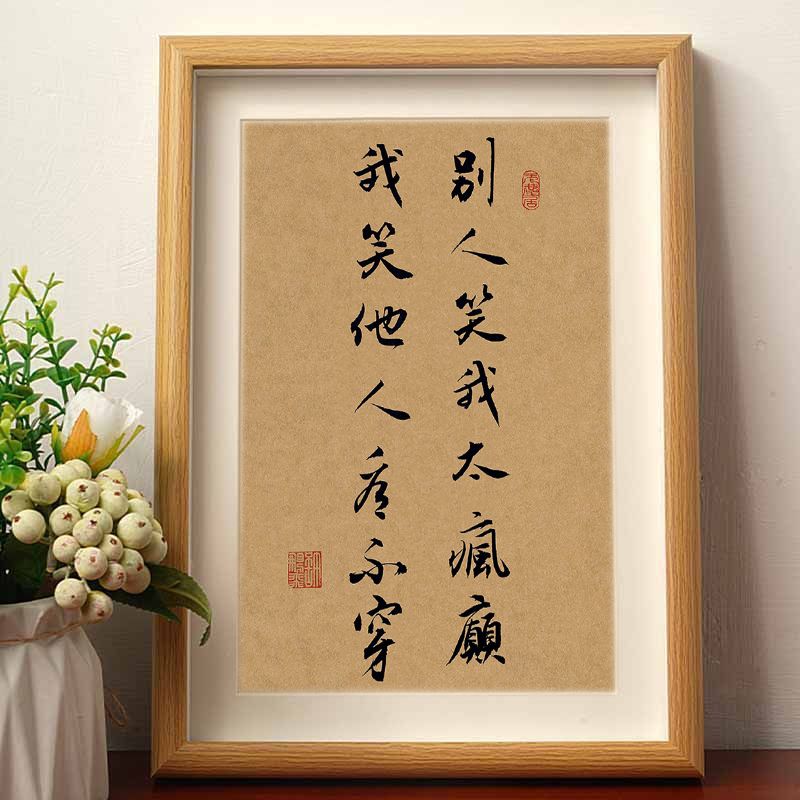 別人笑我太瘋癲
我笑他人看不穿